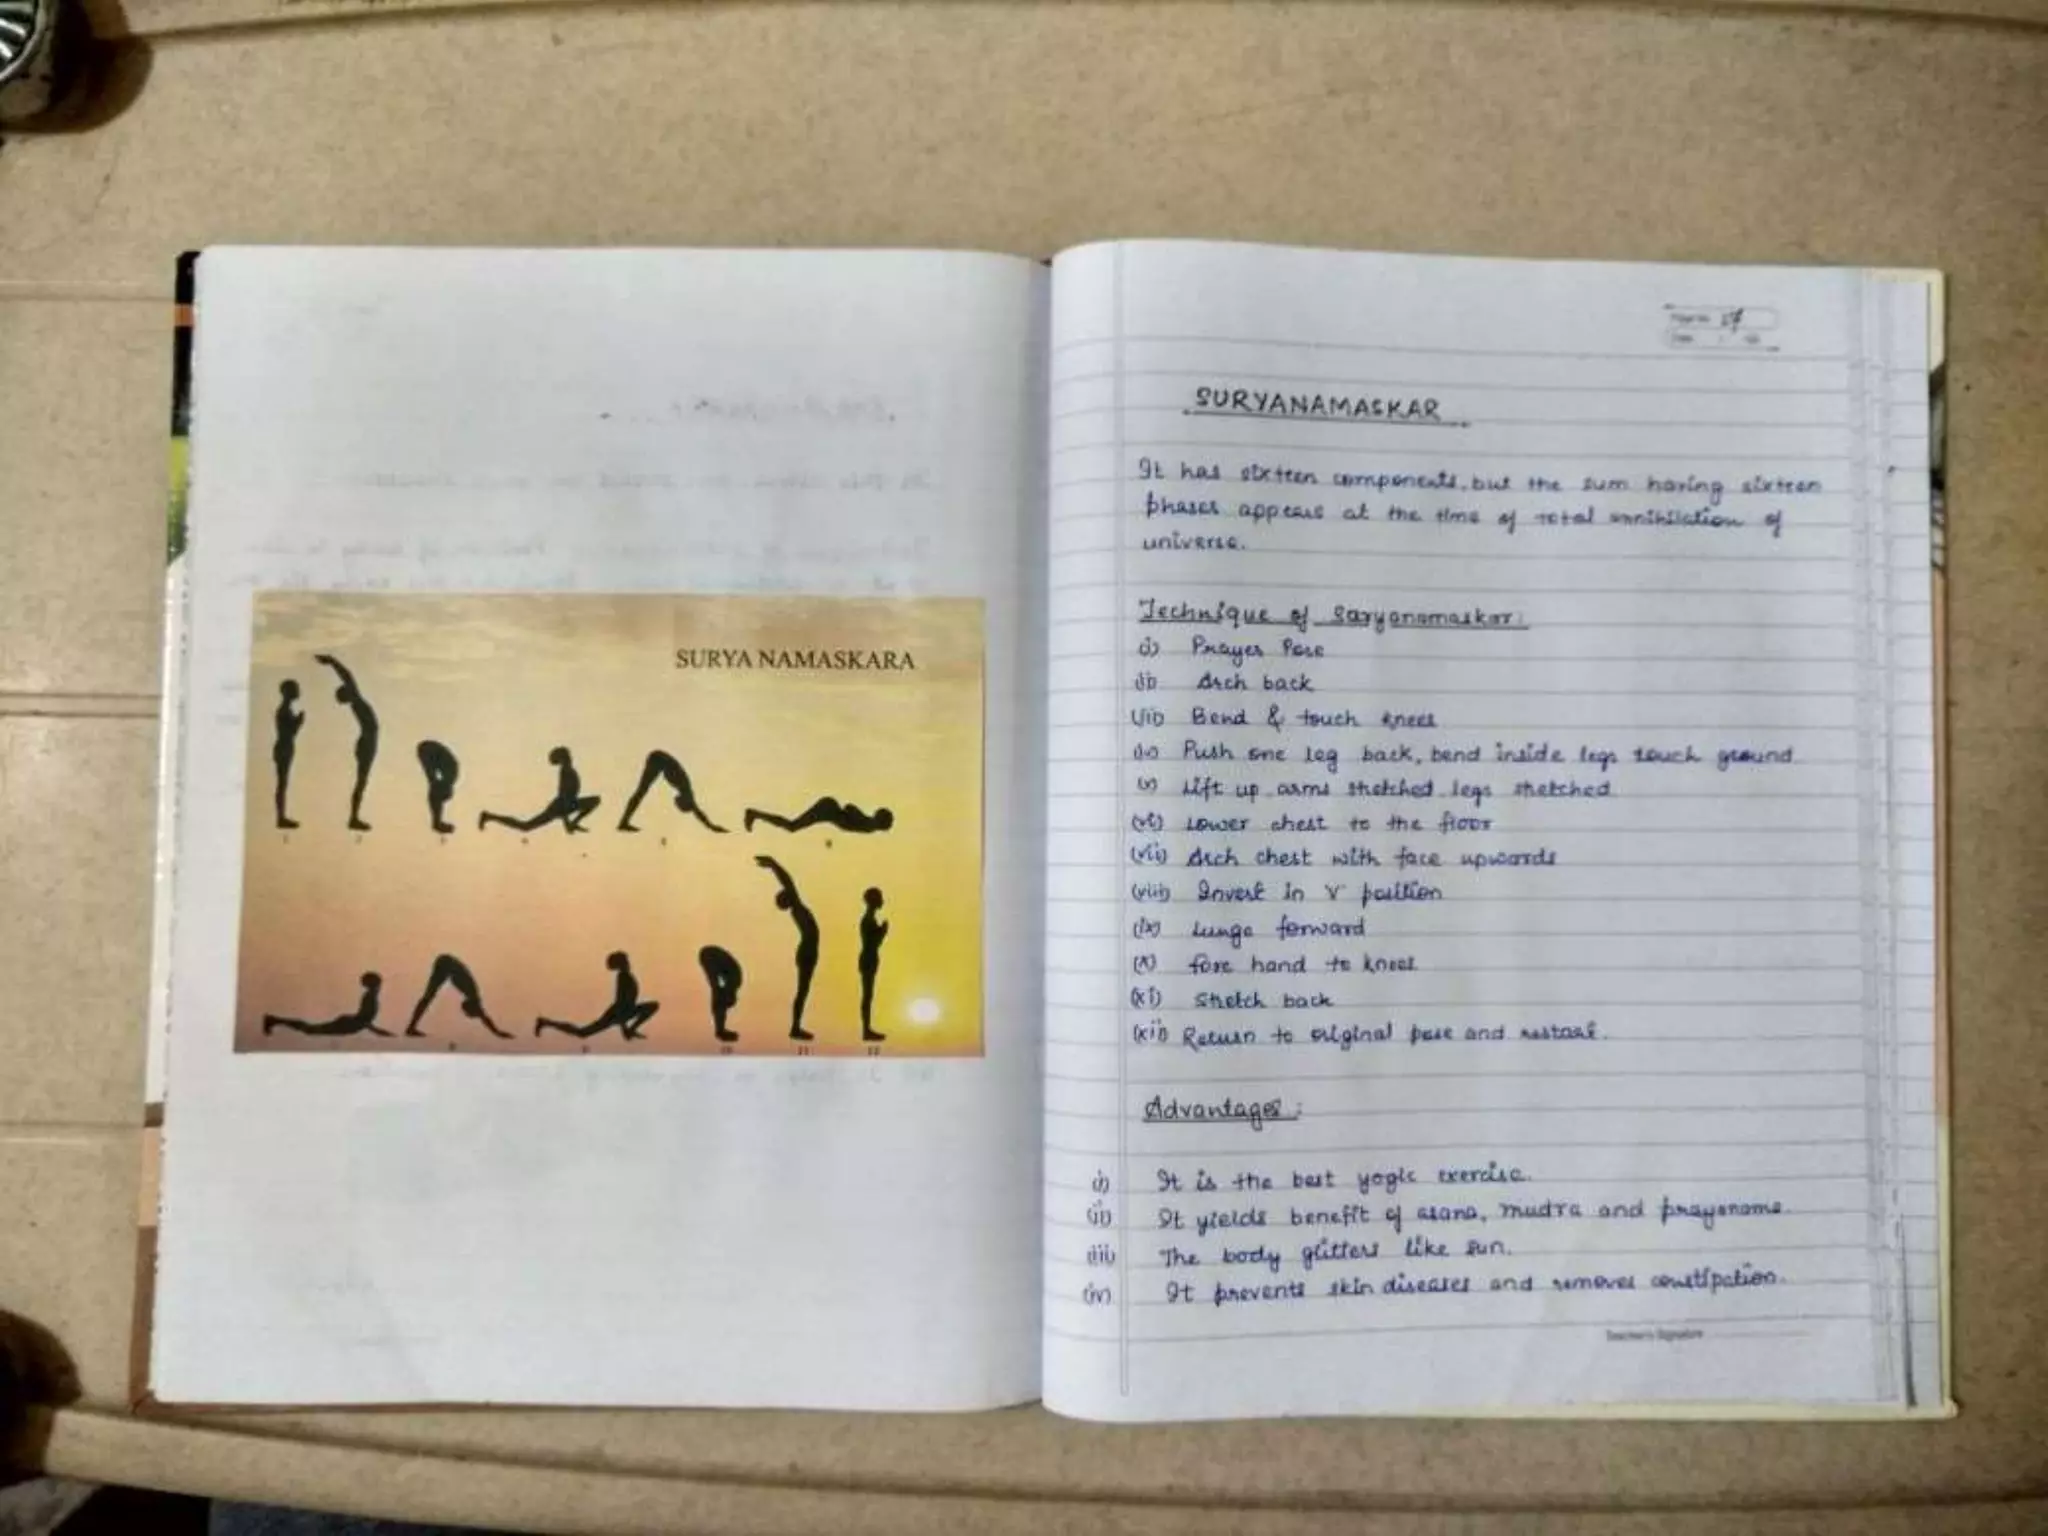 SURYA NAMASKARA
1 2 3 4 5 6
7 8 9 10 11 12
Page No. 27
Date
SURYANAMASKAR
It has sixteen components, but the sum having sixteen
phases appears at the time of total annihilation of
universe.
Technique of Saryanamaskar:
i) Prayer Pose
ii) Arch back
(iii) Bend & touch knees
iv) Push one leg back, bend inside legs touch ground
v) Lift up arms stretched legs stretched
(vi) Lower chest to the floor
(vii) Arch chest with face upwards
(viii) Invert in V position
(ix) Lunge forward
(x) fore hand to knees
(xi) Stretch back
(xii) Return to original pose and restart.
Advantages:
i) It is the best yogic exercise.
(ii) It yields benefit of asana, mudra and prayanama.
(iii) The body glitters like sun.
(iv) It prevents skin diseases and removes constipation.
Teacher's Signature